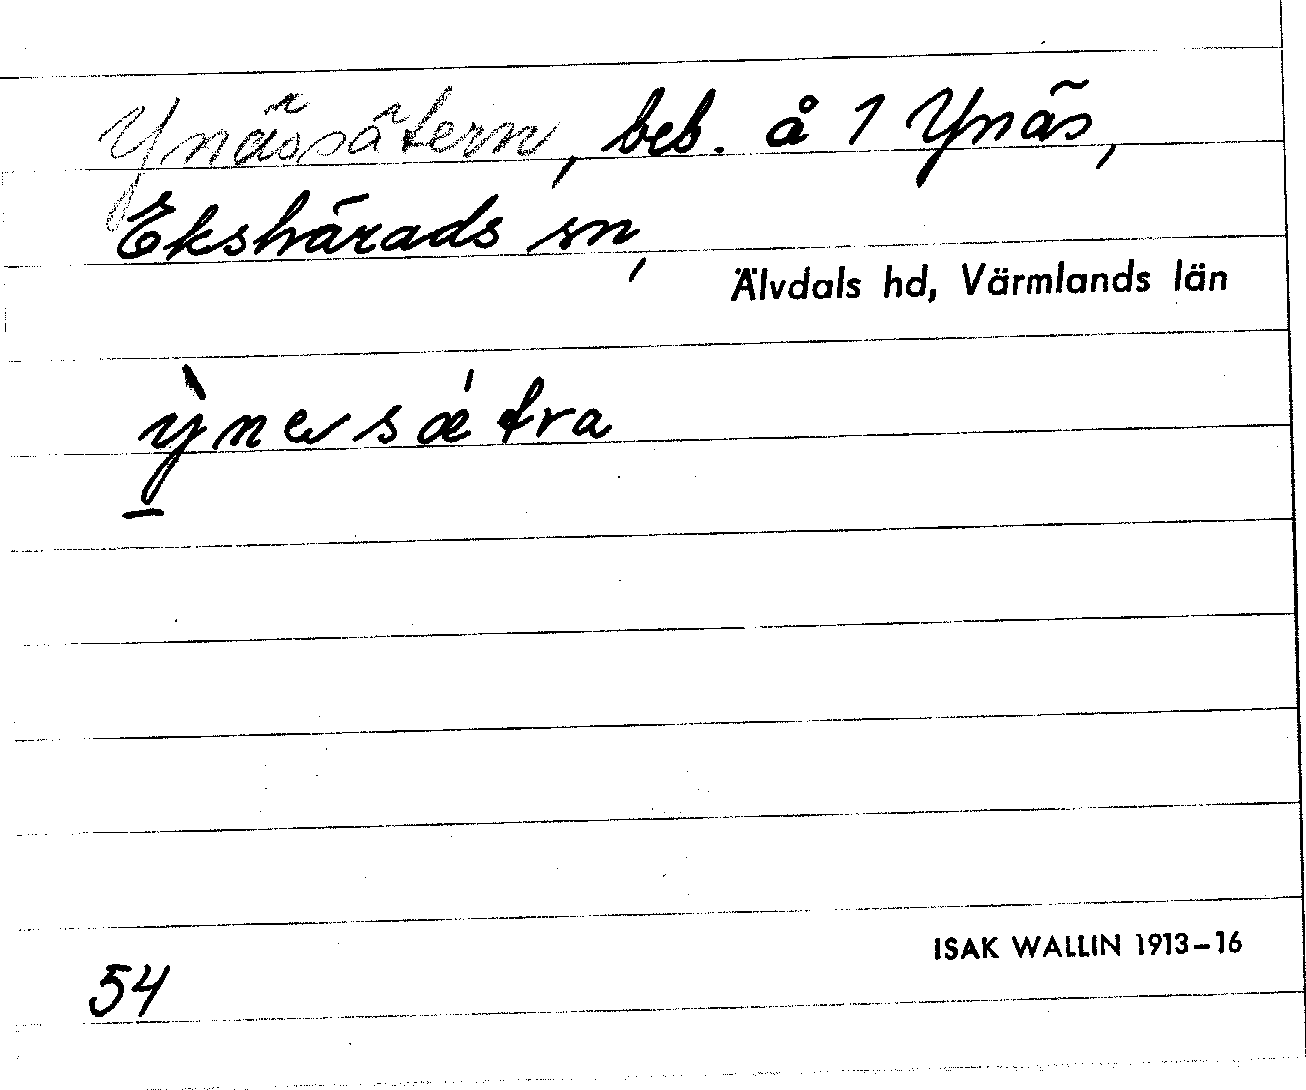 Ynässätern, beb. å 1 Ynäs,
Ekshärads sn,
Älvdals hd, Värmlands län
ỳnesǽtra
54
ISAK WALLIN 1913–16